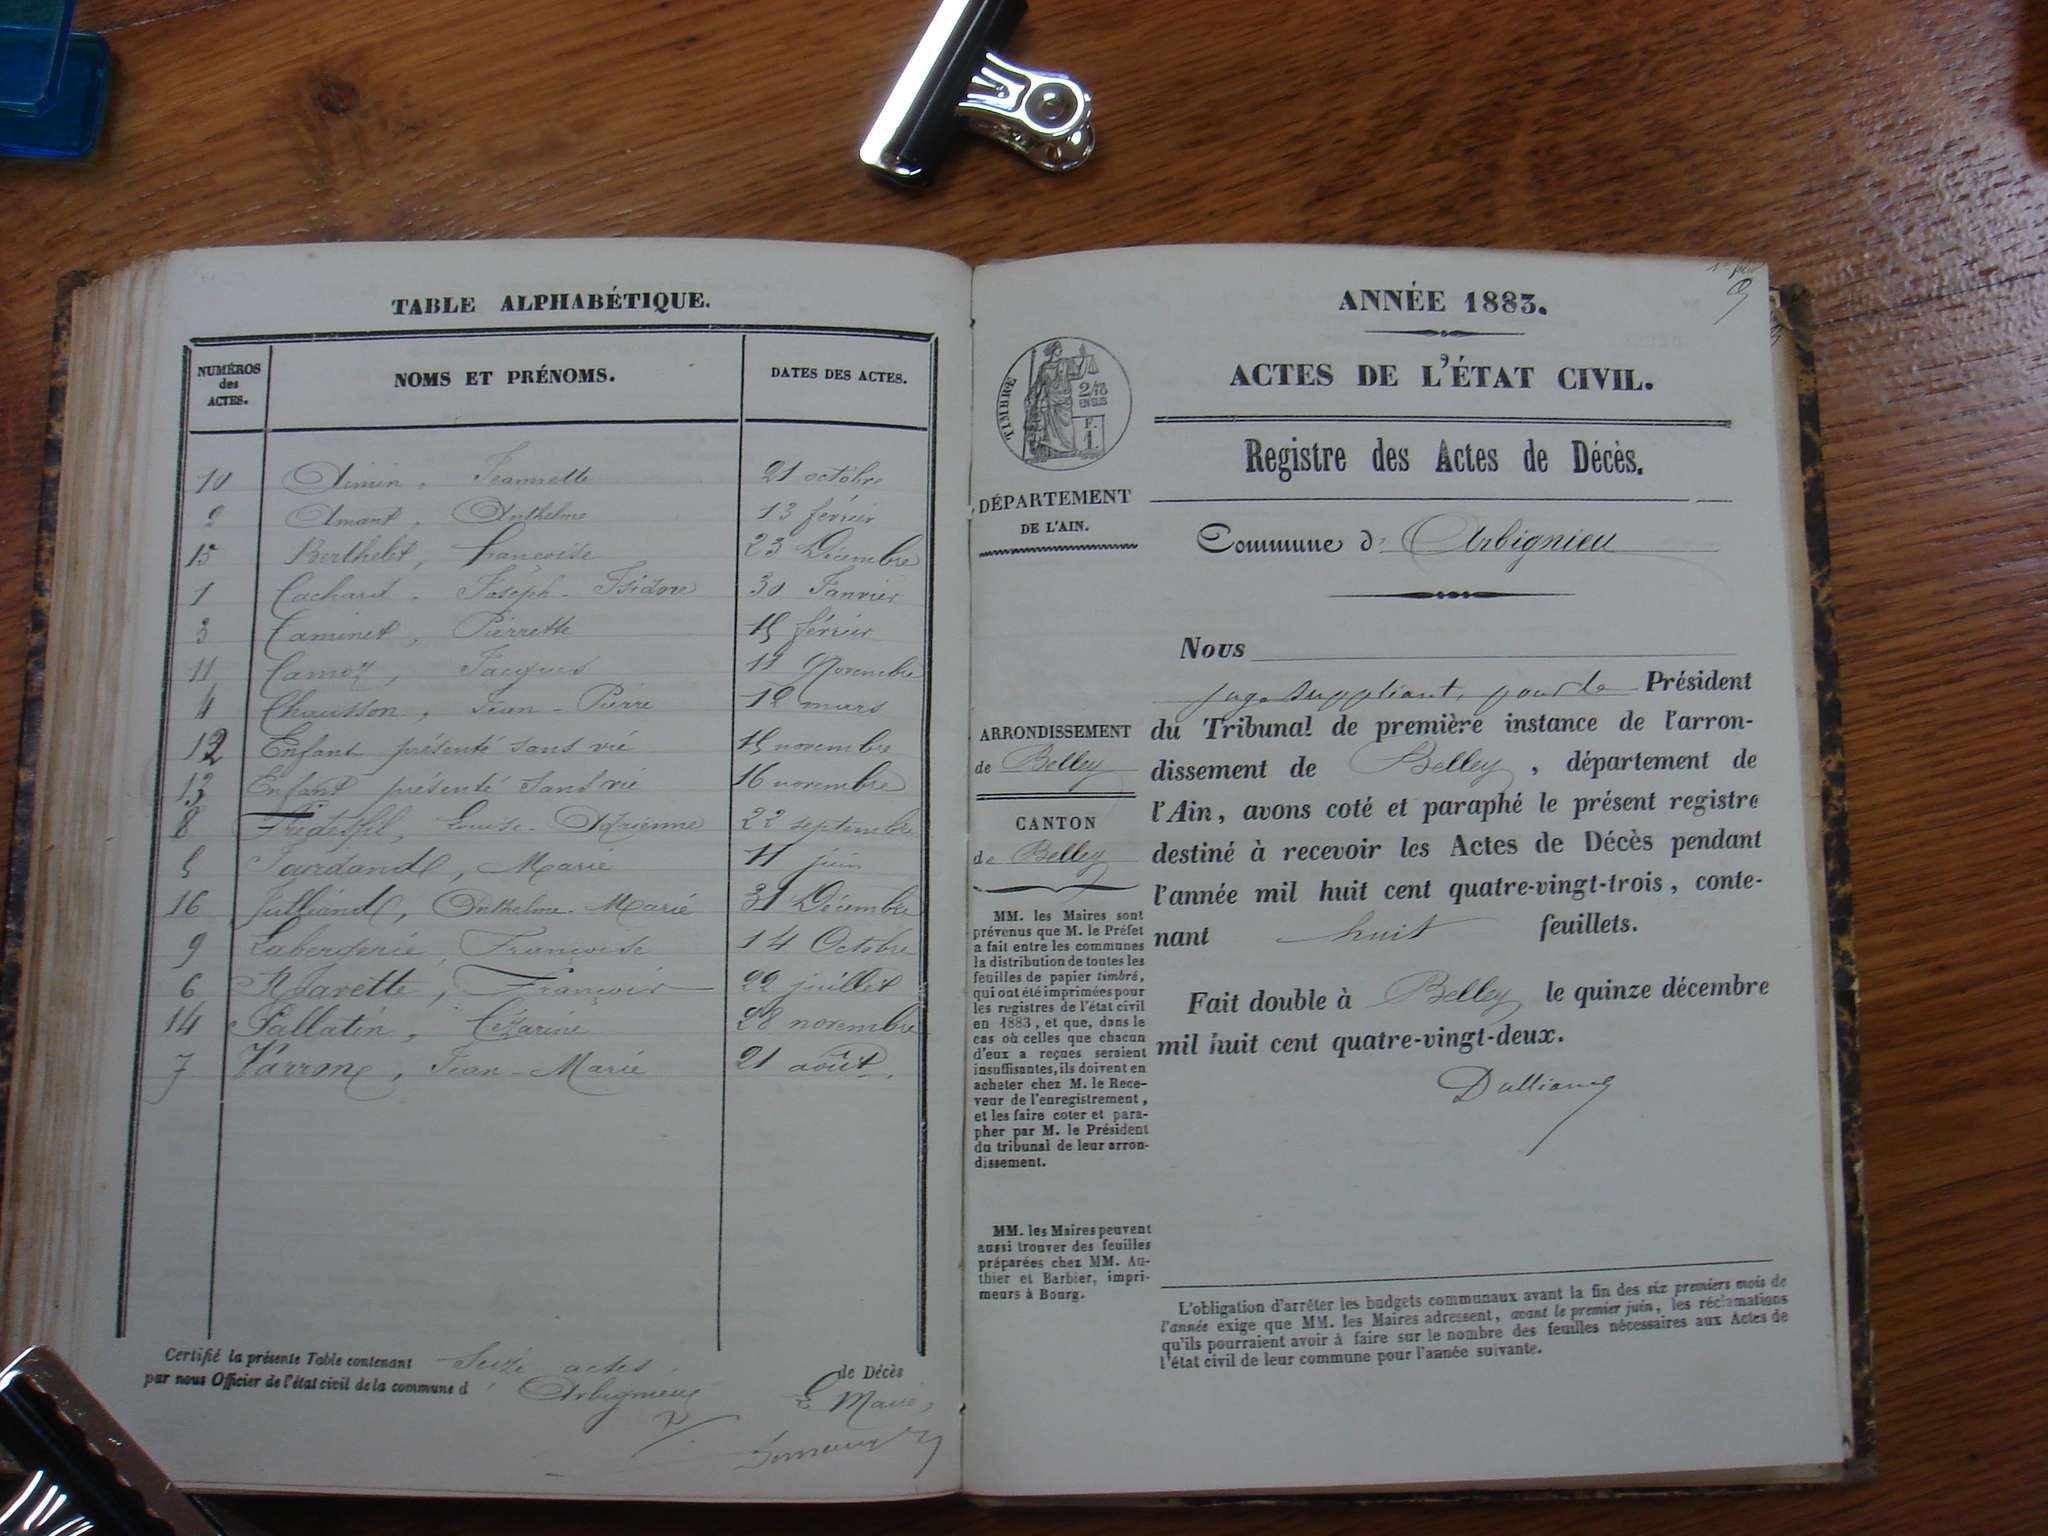 TABLE ALPHABÉTIQUE.
NUMÉROS des ACTES.
NOMS ET PRÉNOMS.
DATES DES ACTES.
10 Aimin, Jeannette 21 octobre
2 Amant, Anthelme 13 février
15 Berthelet, françoise 23 Décembre
1 Cachard, Joseph-Isidore 30 Janvier
3 Caminet, Pierrette 15 février
11 Camoz, Jacques 11 Novembre
4 Chausson, Jean-Pierre 12 mars
12 Enfant présenté sans vie 15 novembre
13 Enfant présenté sans vie 16 novembre
8 Louise-Adrienne 22 septembre
5 Marie 11 juin
16 Julliand, Anthelme-Marie 31 Décembre
9 Labergerie, Françoise 14 Octobre
6 Navette, François 22 juillet
14 Pallatin, Cézarine 28 novembre
7 Varron, Jean-Marie 21 août.
Certifié la présente Table contenant Seize actes de Décès
par nous Officier de l'état civil de la commune d'Arbignieu
Le Maire,
ANNÉE 1883.
ACTES DE L'ÉTAT CIVIL.
TIMBRE
2/10
EN SUS
F.
1.
Registre des Actes de Décès.
DÉPARTEMENT
DE L'AIN.
Commune d'Arbignieu
Nous
juge suppléant, pour le Président
du Tribunal de première instance de l'arron-
dissement de Belley, département de
l'Ain, avons coté et paraphé le présent registre
destiné à recevoir les Actes de Décès pendant
l'année mil huit cent quatre-vingt-trois, conte-
nant huit feuillets.
Fait double à Belley le quinze décembre
mil huit cent quatre-vingt-deux.
ARRONDISSEMENT
de Belley
CANTON
de Belley
MM. les Maires sont
prévenus que M. le Préfet
a fait entre les communes
la distribution de toutes les
feuilles de papier timbré,
qui ont été imprimées pour
les registres de l'état civil
en 1883, et que, dans le
cas où celles que chacun
d'eux a reçues seraient
insuffisantes, ils doivent en
acheter chez M. le Rece-
veur de l'enregistrement,
et les faire coter et para-
pher par M. le Président
du tribunal de leur arron-
dissement.
MM. les Maires peuvent
aussi trouver des feuilles
préparées chez MM. Au-
thier et Barbier, impri-
meurs à Bourg.
L'obligation d'arrêter les budgets communaux avant la fin des six premiers mois de
l'année exige que MM. les Maires adressent, avant le premier juin, les réclamations
qu'ils pourraient avoir à faire sur le nombre des feuilles nécessaires aux Actes de
l'état civil de leur commune pour l'année suivante.